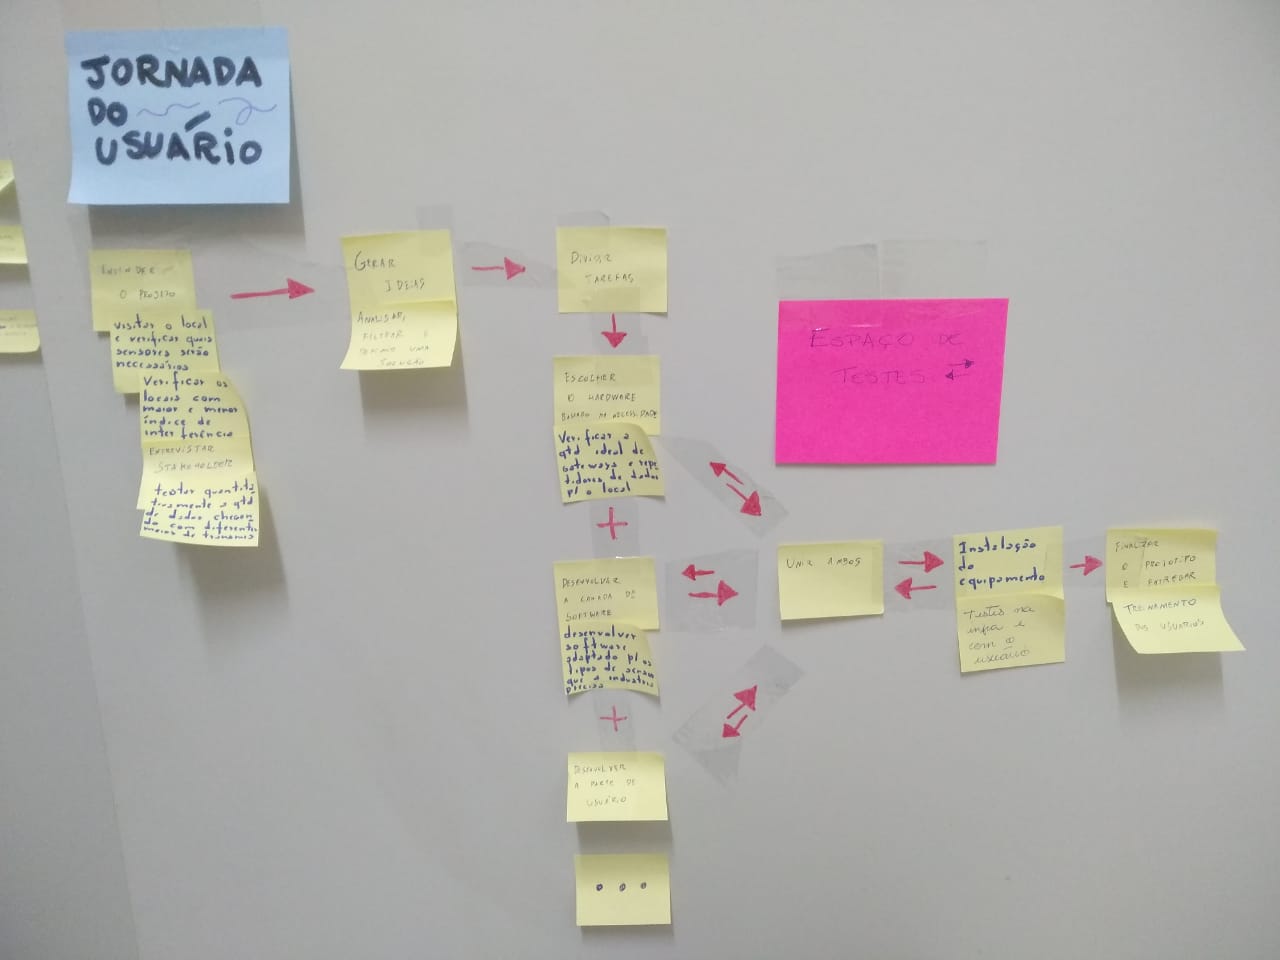 JORNADA
DO
USUÁRIO
ENTENDER
O PROJETO
visitar o local
e verificar quais
sensores serão
necessários
Verificar os
locais com
maior e menor
índice de
interferência
ENTREVISTAR
STAKEHOLDER
testar quantita
tivamente a qtd
de dados chegan
do com diferentes
meios de transmis
GERAR
IDEIAS
ANALISAR,
FILTRAR E
DEFINIR UMA
SOLUÇÃO
DIVIDIR
TAREFAS
ESCOLHER
O HARDWARE
BASEADO NA NECESSIDADE
Verificar a
qtd ideal de
Gateways e repe
tidores de dados
p/ o local
+
DESENVOLVER
A CAMADA DE
SOFTWARE
desenvolver
software
adaptado p/ os
tipos de sensor
que a industria
precisa
+
DESENVOLVER
A PARTE DE
USUÁRIO
...
ESPAÇO DE
TESTES
UNIR AMBOS
Instalação
do
equipamento
Testes na
infra e
com o
usuário
FINALIZAR
O PROTOTIPO
E ENTREGAR
TREINAMENTO
DOS USUARIOS